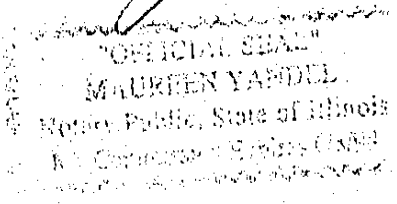 "OFFICIAL SEAL"
MAUREEN YANDEL
Notary Public, State of Illinois
My Commission Expires